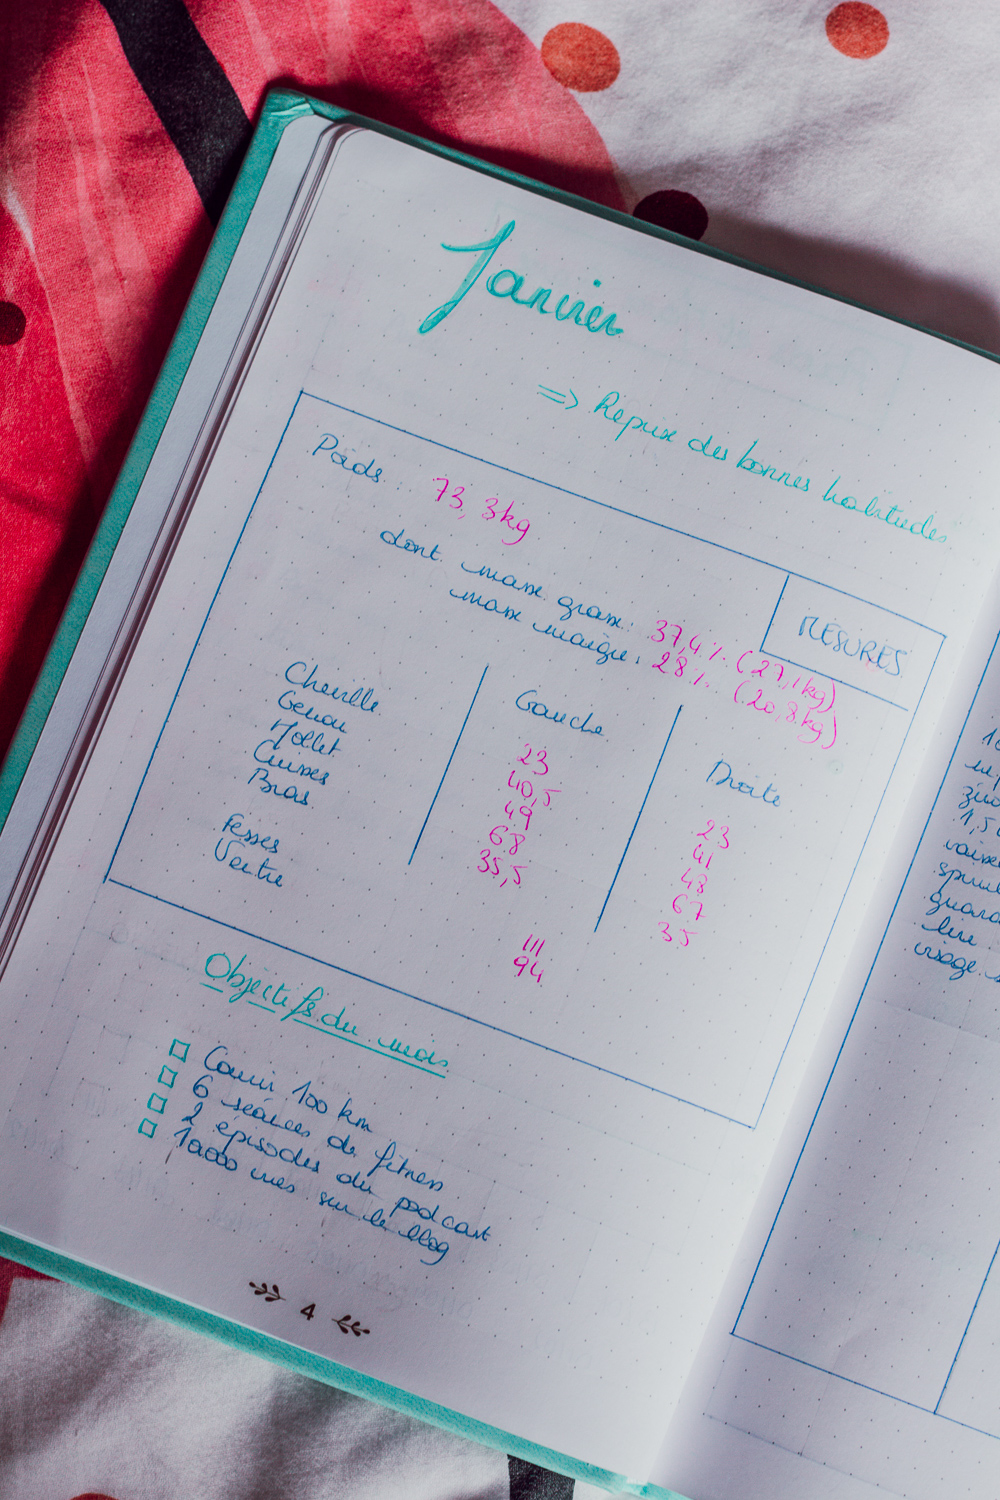 Janvier
=> Reprise des bonnes habitudes
MESURES
Poids : 73,3kg
dont masse grasse : 37,4% (27,1kg)
masse maigre : 28% (20,8kg)
Gauche Droite
Cheville 23 23
Genou 40,5 41
Mollet 49 48
Cuisses 68 67
Bras 35,5 35
Fesses 111
Ventre 94
Objectifs du mois
□ Courir 100 km
□ 6 séances de fitness
□ 2 épisodes du podcast
□ 10000 vues sur le blog
4
1,5
lire
visage